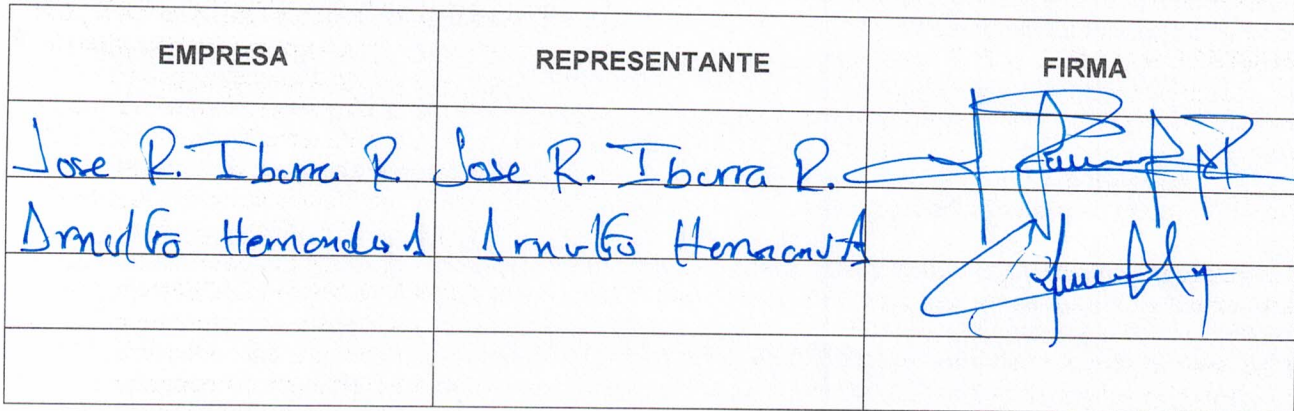 EMPRESA REPRESENTANTE FIRMA
Jose R. Ibarra R. Jose R. Ibarra R.
Arnulfo Hernandez A Arnulfo